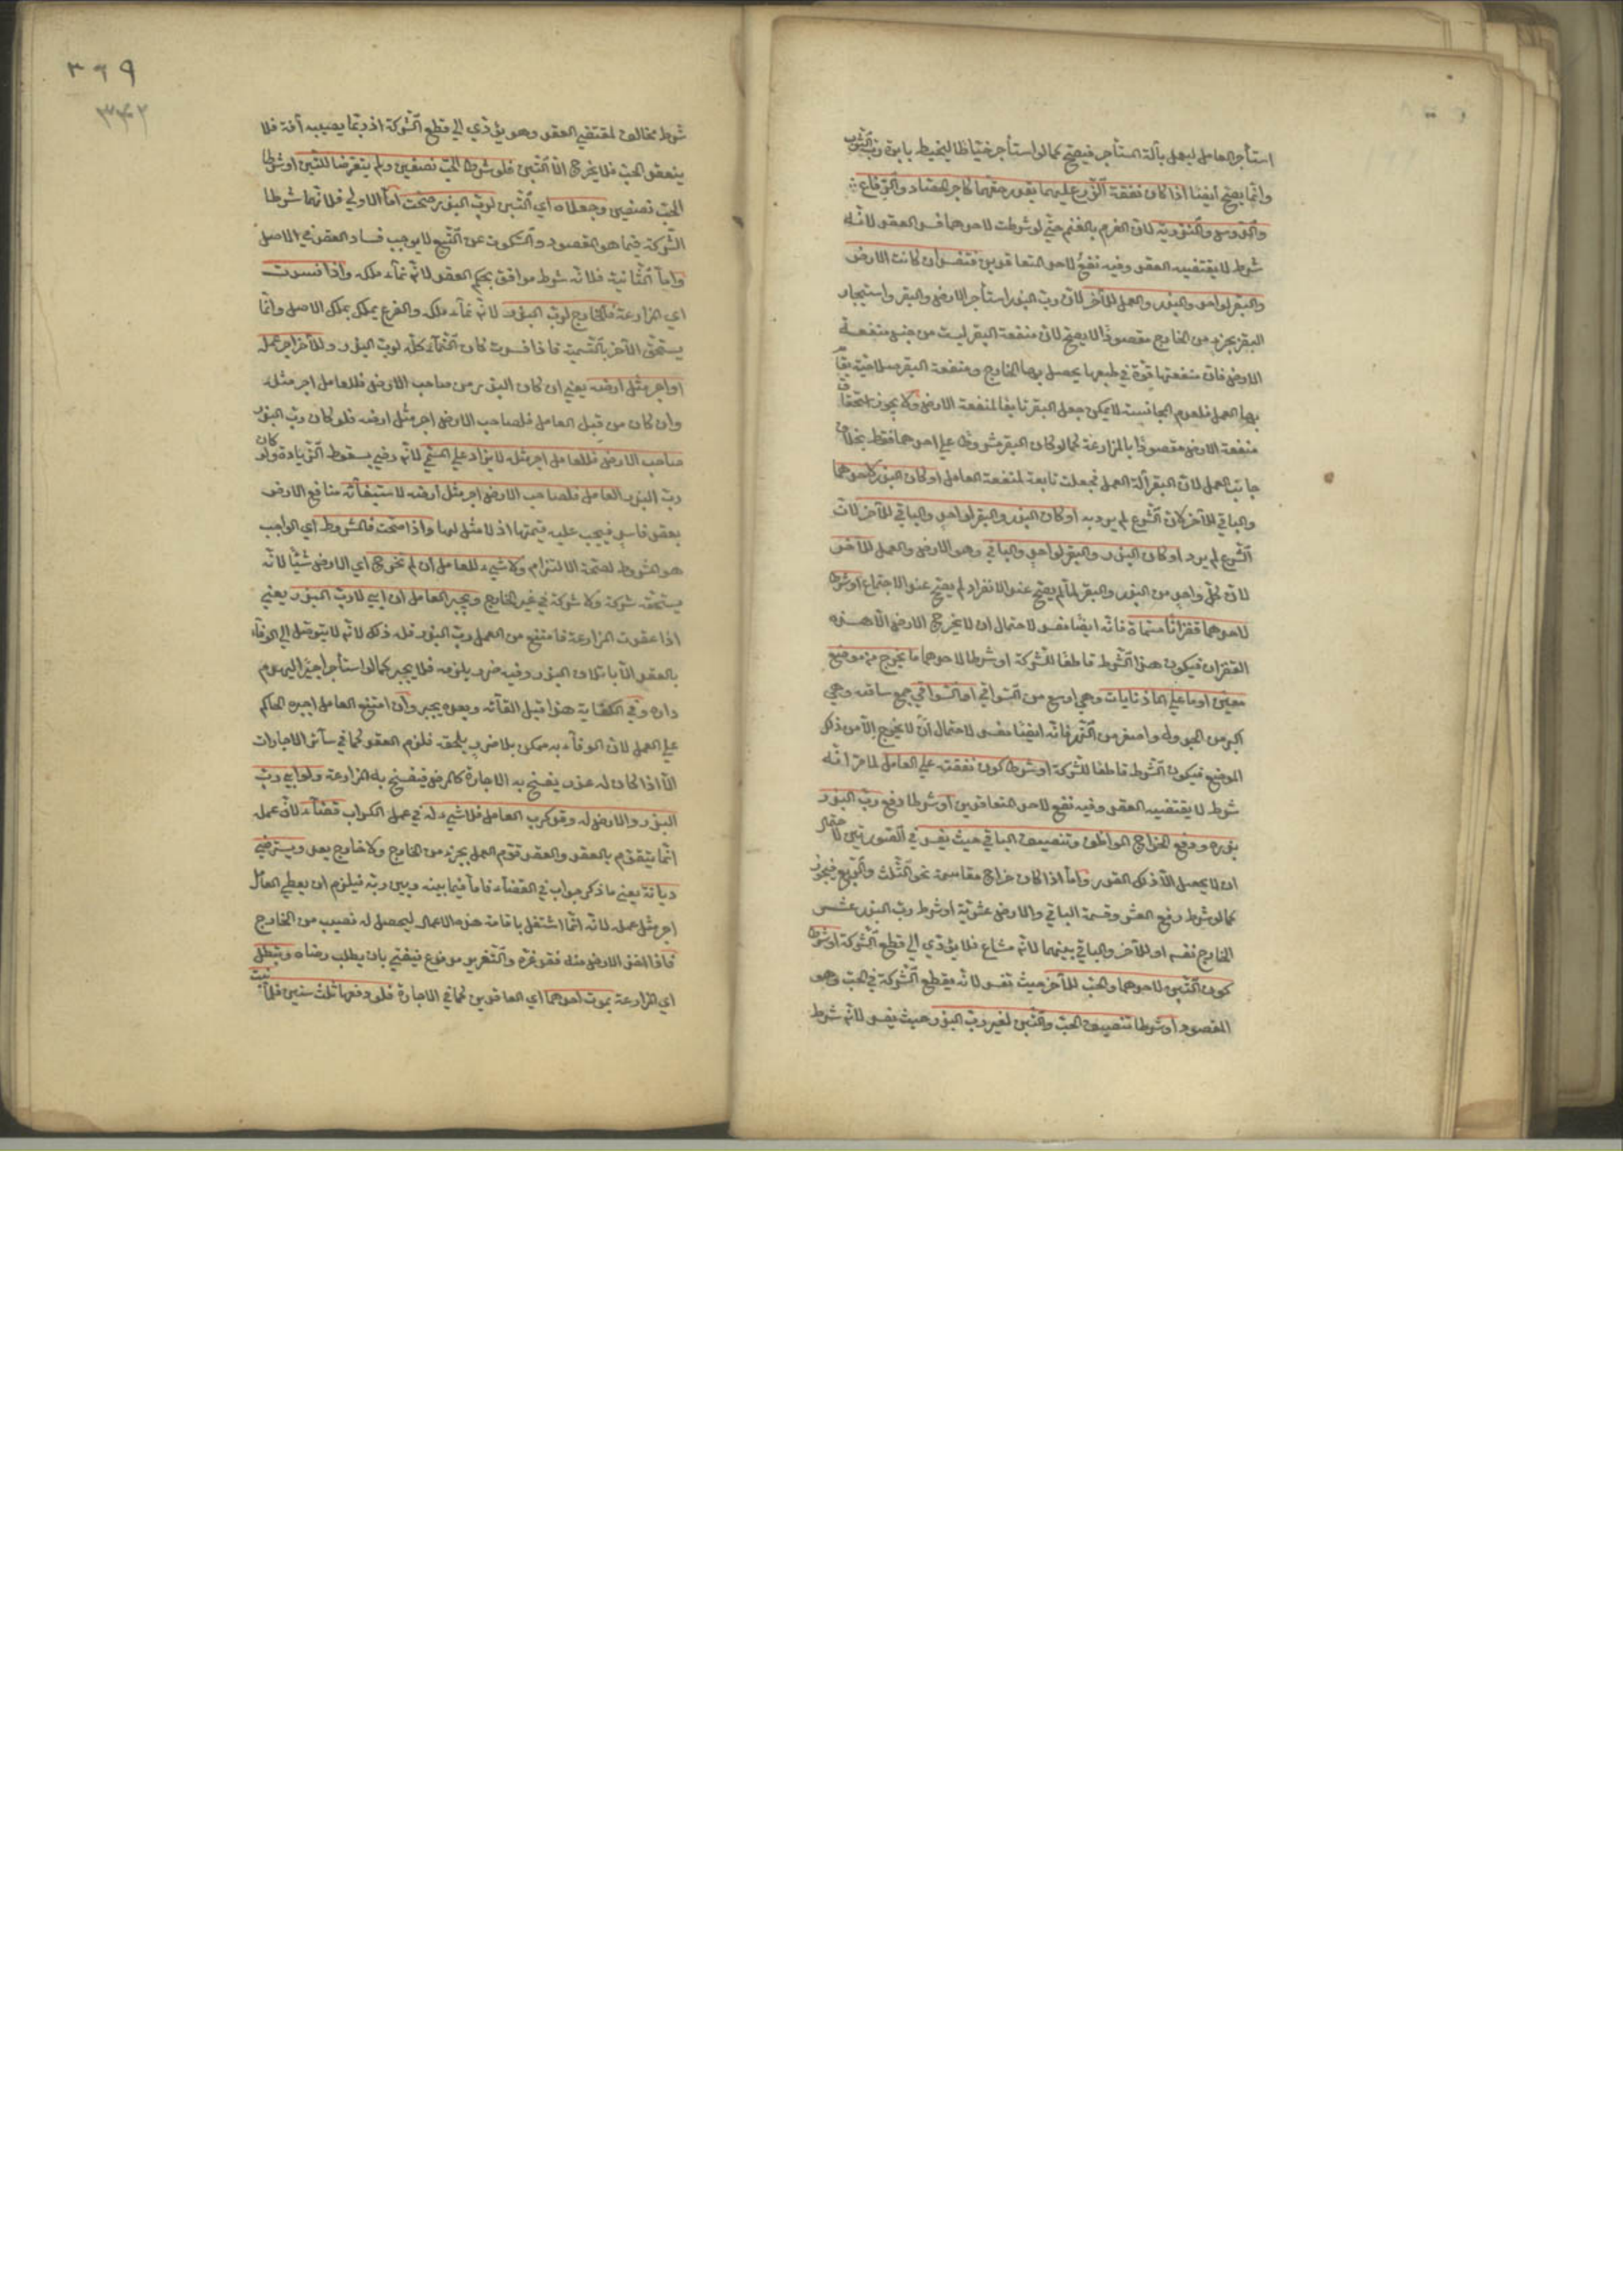 استأجر العامل ليعمل بآلة المستأجر فيصح كما لو استأجر خياطا ليخيط بابرة رب الثوب
وانما يصح أيضا اذا كان نفقة الزرع عليهما بقدر حقهما كاجر الحصاد والرفاع
والدوس والتذرية لان الغرم بالغنم حتى لو شرطت لاحدهما فسد العقد لانه
شرط لا يقتضيه العقد وفيه نفع لاحد المتعاقدين فتفسد ان كانت الارض
والبقر لواحد والبذر والعمل للآخر لان رب البذر استأجر الارض والبقر واستيجار
البقر بجزء من الخارج مقصودا لا يصح لان منفعة البقر ليست من جنس منفعة
الارض فان منفعتها قوة في طبعها يحصل بها الخارج ومنفعة البقر صلاحية يقام
بها العمل فلعدم المجانسة لا يمكن جعل البقر تابعا لمنفعة الارض ولا يجوز استحقاق
منفعة الارض مقصودا بالمزارعة كما لو كان البقر مشروطا على احدهما فقط بخلاف
جانب العمل لان البقر آلة العمل فجعلت تابعة لمنفعة العامل او كان البذر لاحدهما
والباقي للآخر لان الشرع لم يرد به او كان البذر والبقر لواحد والباقي للآخر لان
الشرع لم يرد او كان البذر والبقر لواحد والباقي وهو الارض والعمل للآخر
لان كل واحد من البذر والبقر لما لم يصح عند الانفراد لم يصح عند الاجتماع او شرطا
لاحدهما قفزانا مسماة فانه ايضا مفسد لاحتمال ان لا يخرج الارض الا هذه
القفزان فيكون هذا الشرط قاطعا للشركة او شرطا لاحدهما ما يخرج من موضع
معين او ما على الماذنايات وهي اوسع من السواقي او السواقي جمع ساقيه وهي
اكبر من الجدول واصغر من النهر فانه ايضا مفسد لاحتمال ان لا يخرج الا من ذلك
الموضع فيكون الشرط قاطعا للشركة او شرطا كون نفقته على العامل لما مر انه
شرط لا يقتضيه العقد وفيه نفع لاحد المتعاقدين او شرطا دفع رب البذر
بذره ودفع الخراج الموظف وتنصيف الباقي حيث يفسد في الصورتين لاحتمال
ان لا يحصل الا ذلك القدر واما اذا كان خراج مقاسمة نحو الثلث والربع فيجوز
كما لو شرط دفع العشر وقسمة الباقي والارض عشرية او شرط رب البذر عشر
الخارج نفسه او للآخر والباقي بينهما لانه مشاع فلا يؤدي الى قطع الشركة او شرطا
كون التبن لاحدهما والحب للآخر حيث تفسد لانه يقطع الشركة في الحب وهو
المقصود او شرطا تنصيف الحب والتبن لغير رب البذر حيث يفسد لانه شرط
٣٦٩
شرط مخالف لمقتضى العقد وهو يؤدي الى قطع الشركة اذ ربما يصيبه آفة فلا
ينعقد الحب فلا يخرج الا التبن فلو شرطا الحب نصفين ولم يتعرضا للتبن او شرطا
الحب نصفين وجعلاه اي التبن لرب البذر صحت اما الاولى فلانهما شرطا
الشركة فيما هو المقصود والسكوت عن التبع لا يوجب فساد العقد في الاصل
واما الثانية فلانه شرط موافق بحكم العقد لانه نماء ملكه واذا فسدت
اي المزارعة فالخارج لرب البذر لانه نماء ملكه والفرع يملك بملك الاصل وانما
يستحق الآخر بالتسمية فاذا فسدت كان النماء كله لرب البذر وللآخر اجر عمله
او اجر مثل ارضه يعني ان كان البذر من صاحب الارض فللعامل اجر مثله
وان كان من قبل العامل فلصاحب الارض اجر مثل ارضه فلو كان رب البذر
صاحب الارض فللعامل اجر مثله لا يزاد على المسمى لانه رضي بسقوط الزيادة ولو كان
رب البذر العامل فلصاحب الارض اجر مثل ارضه لاستيفائه منافع الارض
بعقد فاسد فيجب عليه قيمتها اذ لا مثل لها واذا صحت فالمشروط اي الواجب
هو المشروط لصحة الالتزام ولا شيء للعامل ان لم تخرج اي الارض شيئا لانه
يستحقه شركة ولا شركة في غير الخارج ويجبر العامل ان ابى لا رب البذر يعني
اذا عقدت المزارعة فامتنع من العمل رب البذر فله ذلك لانه لا يتوصل الى الوفاء
بالعقد الا باتلاف البذر وفيه ضرر يلزمه فلا يجبر كما لو استأجر اجيرا ليهدم
داره وفي الكفاية هذا قبل القائه وبعده يجبر وان امتنع العامل اجبره الحاكم
على العمل لان الوفاء به ممكن بلا ضرر يلحقه فلزم العقد كما في سائر الاجارات
الا اذا كان له عذر يفسخ به الاجارة كالمرض فيفسخ به المزارعة ولو ابى رب
البذر والارض له وقد كرب العامل فلا شيء له في عمل الكراب قضاء لان عمله
انما يتقوم بالعقد والعقد قوم العمل بجزء من الخارج ولا خارج بعد ويسترضى
ديانة يعني ما ذكر جواب في القضاء فاما فيما بينه وبين ربه فيلزم ان يعطي العامل
اجر مثل عمله لانه انما اشتغل باقامة هذه الاعمال ليحصل له نصيب من الخارج
فاذا اخذ الارض منه فقد غره والتغرير مدفوع فيفتي بان يطلب رضاه وتبطل
اي المزارعة بموت احدهما اي العاقدين كما في الاجارة فلو دفعها ثلث سنين فلما نبت